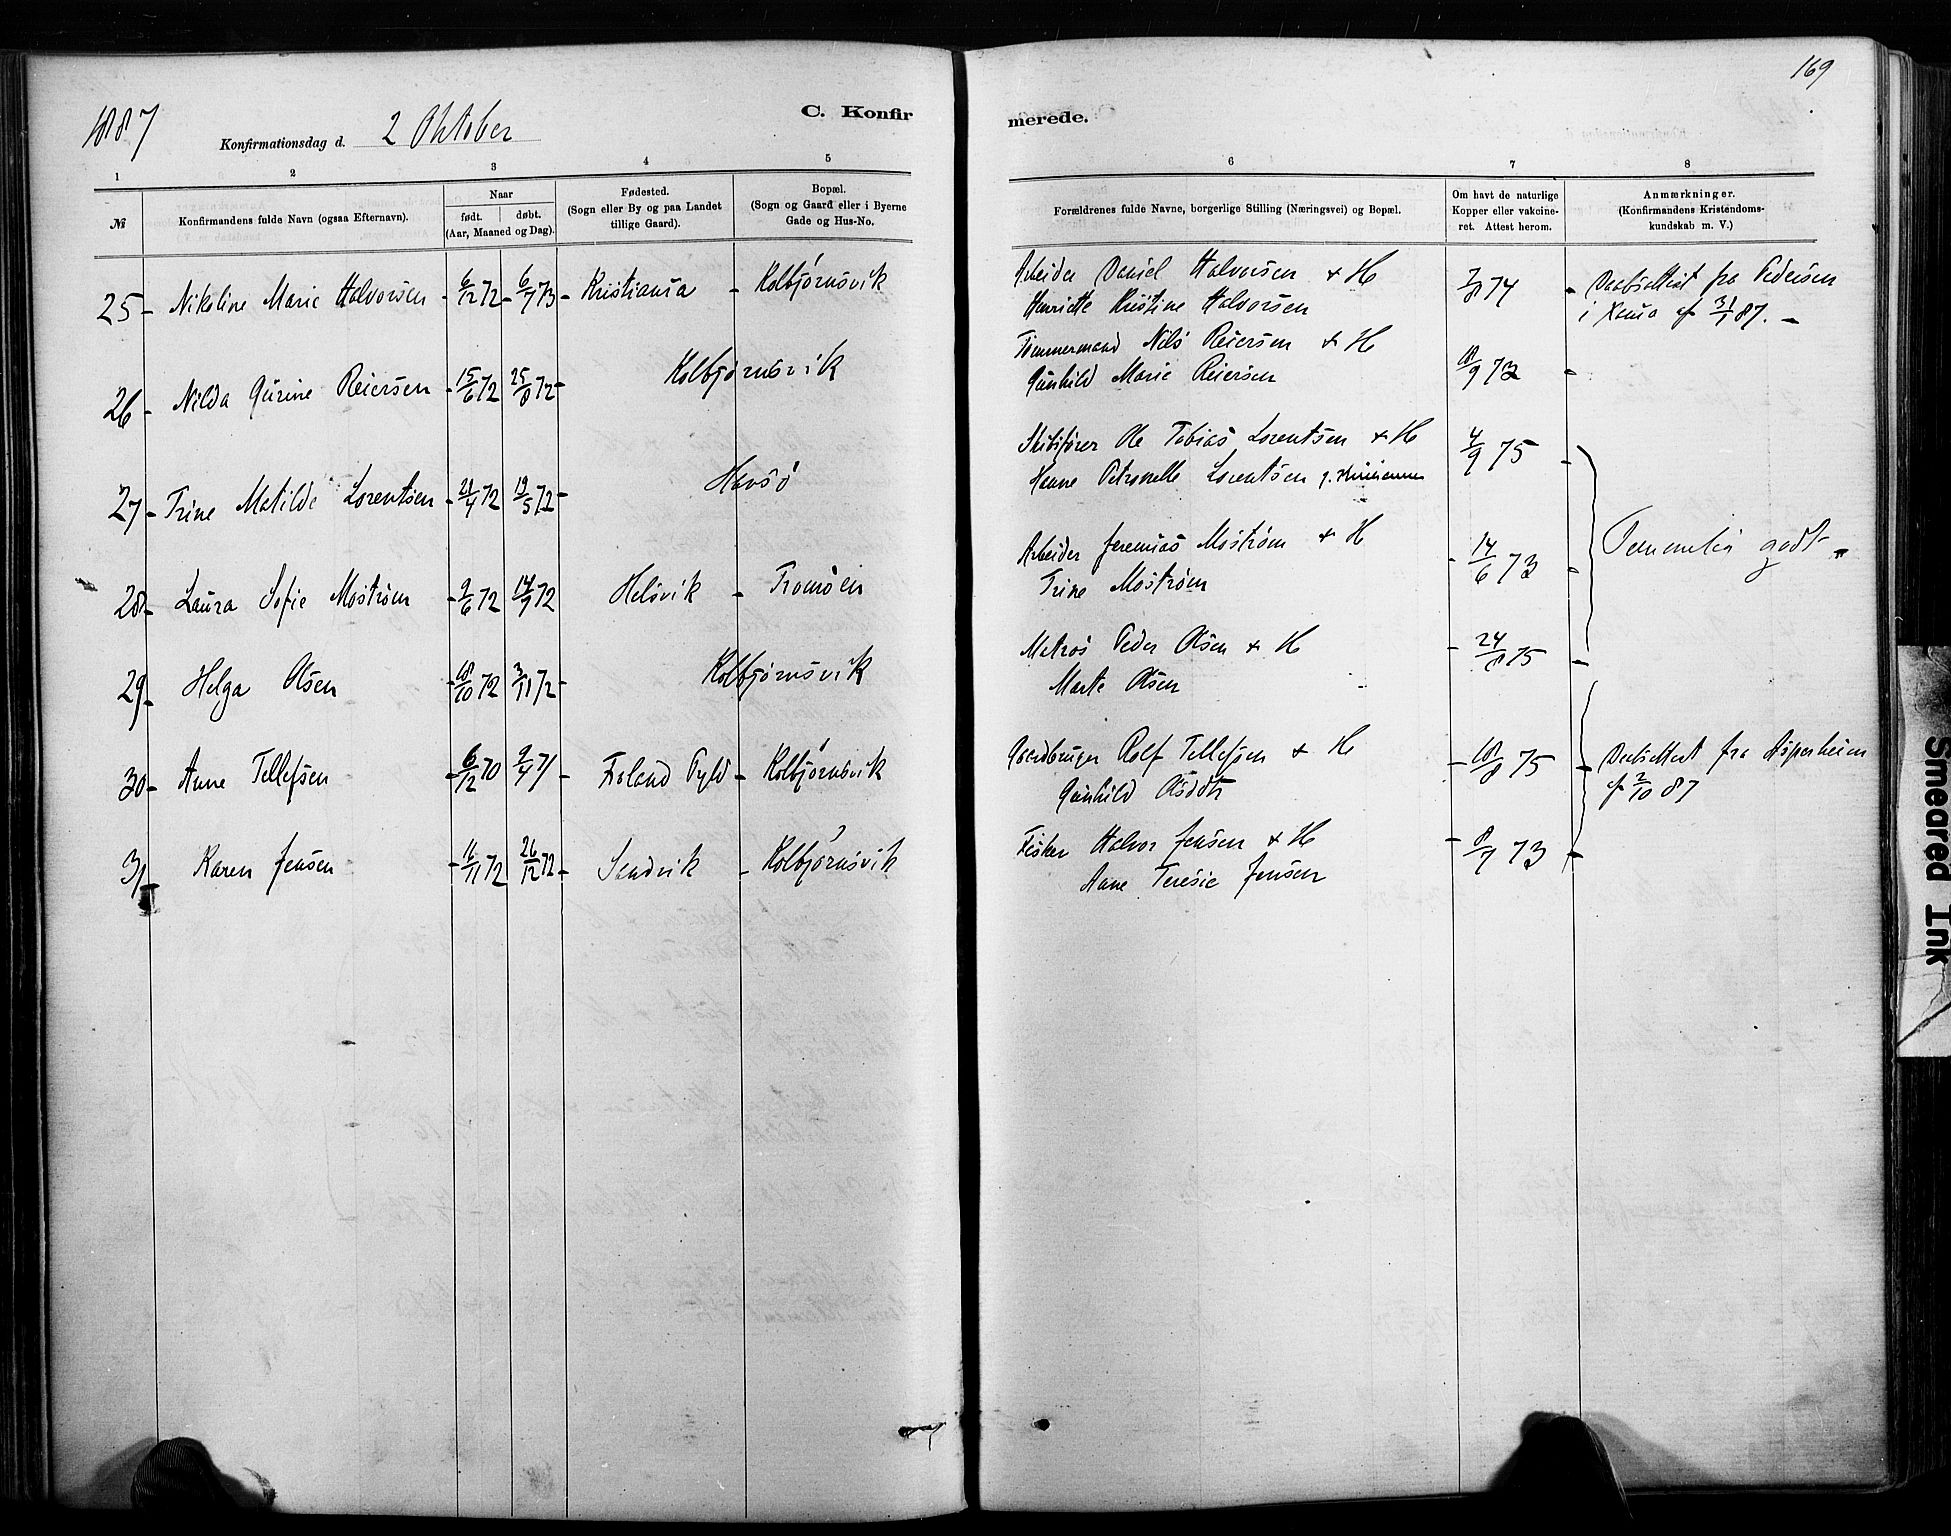 169
1887
Konfirmationsdag d. 2 Oktober
C. Konfir
merede.
1 2 3 4 5 6 7 8
№
Konfirmandens fulde Navn (ogsaa Efternavn).
Naar
født. døbt.
(Aar, Maaned og Dag).
Fødested.
(Sogn eller By og paa Landet
tillige Gaard).
Bopæl.
(Sogn og Gaard eller i Byerne
Gade og Hus-No.
Forældrenes fulde Navne, borgerlige Stilling (Næringsvei) og Bopæl.
Om havt de naturlige
Kopper eller vakcine-
ret. Attest herom.
Anmærkninger.
(Konfirmandens Kristendoms-
kundskab m. V.)
25 - Nikoline Marie Halvorsen - 6/12 72 - 6/7 73 - Kristiania - Kolbjørnsvik
Arbeider Daniel Halvorsen + H
Henriette Kristine Halvorsen
7/8 74 - Daabsattest fra Pedersen
i Xania af 31/1 87. -
26 - Nilda Gurine Reiersen - 15/6 72 25/8 72 - Kolbjørnsvik
Tømmermand Nils Reiersen + H
Gunhild Marie Reiersen
18/9 73 -
27 - Trine Matilde Lorentsen - 21/4 72 19/5 72 - Havsö
Skibsfører Ole Tobias Lorentsen + H
Hanne Petronelle Lorentsen
4/9 75 -
28 - Laura Sofie Moström - 9/6 72 14/9 72 Helsvik - Tromöen
Arbeider Jeremias Moström + H
Trine Moström
- 14/6 73 - Temmelig godt -
29 - Helga Olsen - 18/10 72 3/11 72 - Kolbjørnsvik
Matros Peder Olsen + H
Marte Olsen
- 24/8 75 -
30 - Anne Tellefsen - 6/12 70 9/4 71 - Froland - Kolbjørnsvik
Gaardbruger Rolf Tellefsen + H
Gunhild Olsdtr
- 18/8 75 - Daabsattest fra Asperheim
af 2/10 87
31 - Karen Jensen - 16/11 72 26/12 72 - Sandvik - Kolbjørnsvik
Fisker Halvor Jensen + H
Anne Teresie Jensen
- 8/7 73 -
Smeared Ink